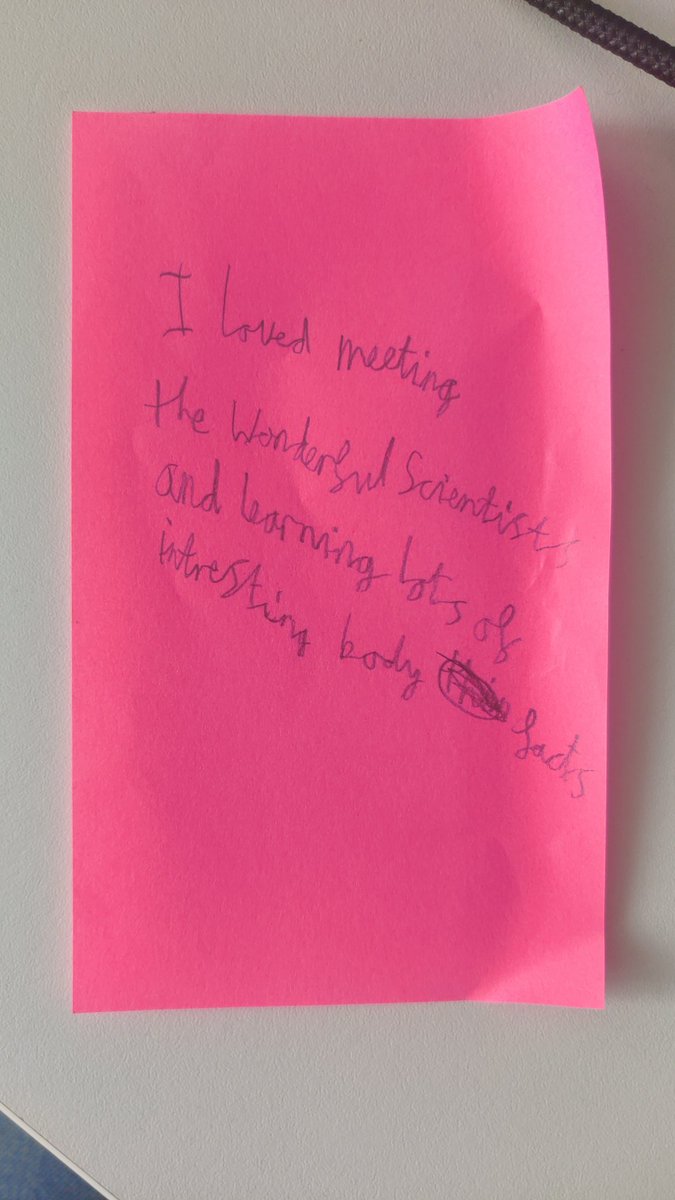 I loved meeting
the Wonderful Scientists
and learning lots of
intresting body facts